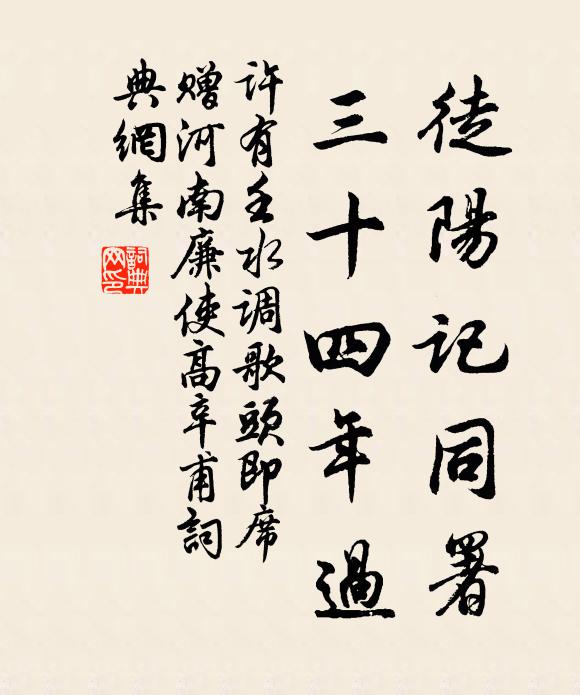 徒陽記同署
三十四年過
許有壬水調歌頭即席
贈河南廉使高辛甫詞
典網集
詞典網印